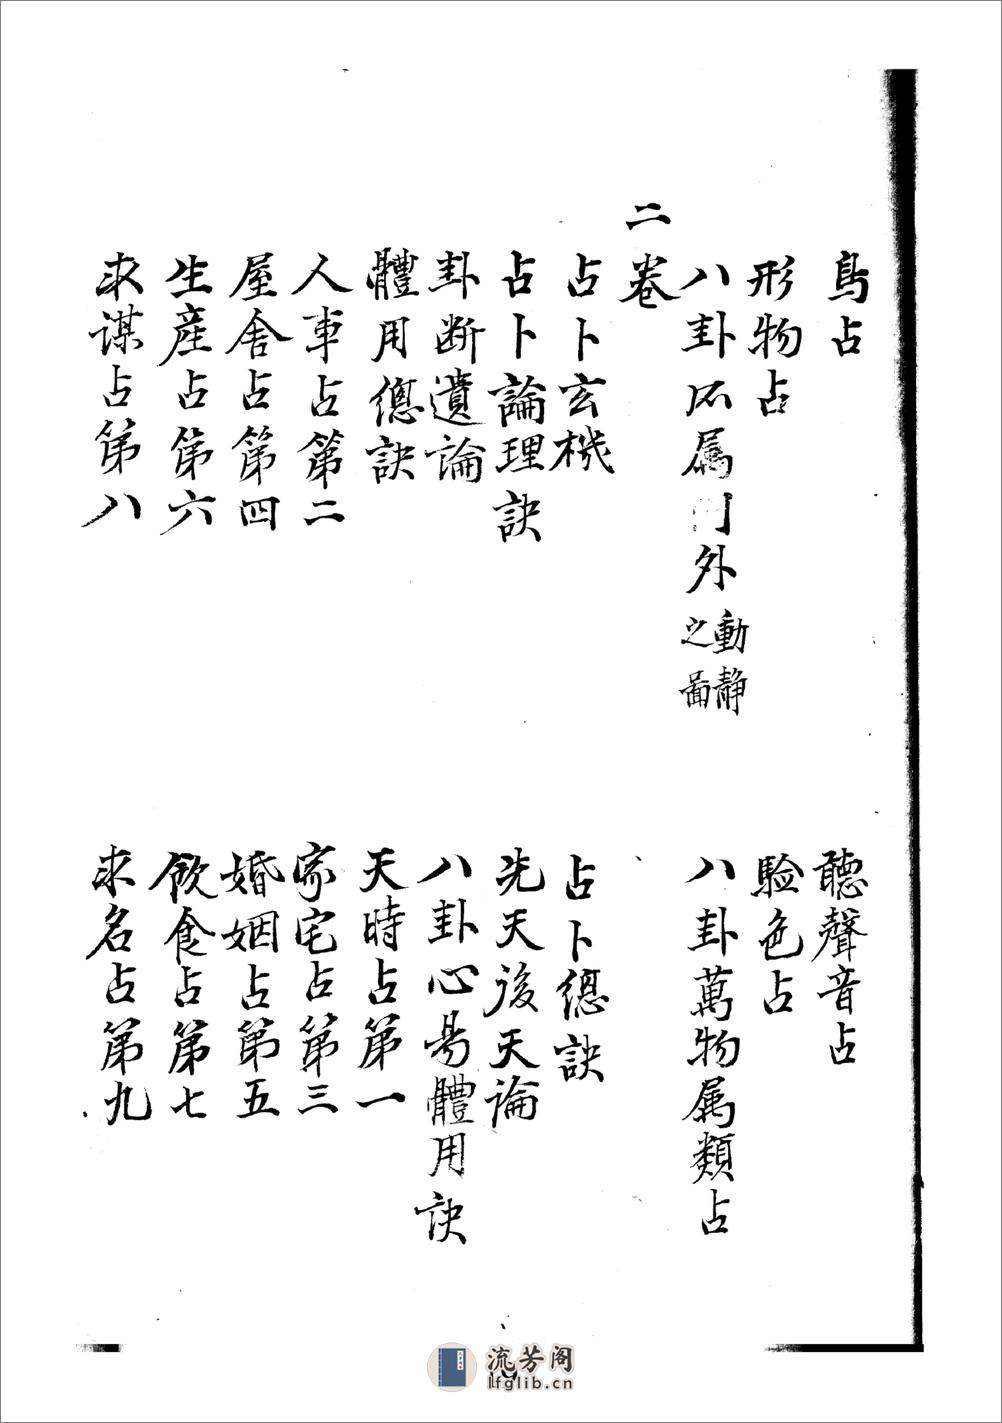 鳥占 聽聲音占
形物占 驗色占
八卦所属門外動靜之啚 八卦萬物属類占
二卷
占卜玄機 占卜總訣
占卜論理訣 先天後天論
卦断遺論 八卦心易體用訣
體用總訣 天時占第一
人事占第二 家宅占第三
屋舍占第四 婚姻占第五
生產占第六 飲食占第七
求謀占第八 求名占第九
流芳阁
lfglib.cn